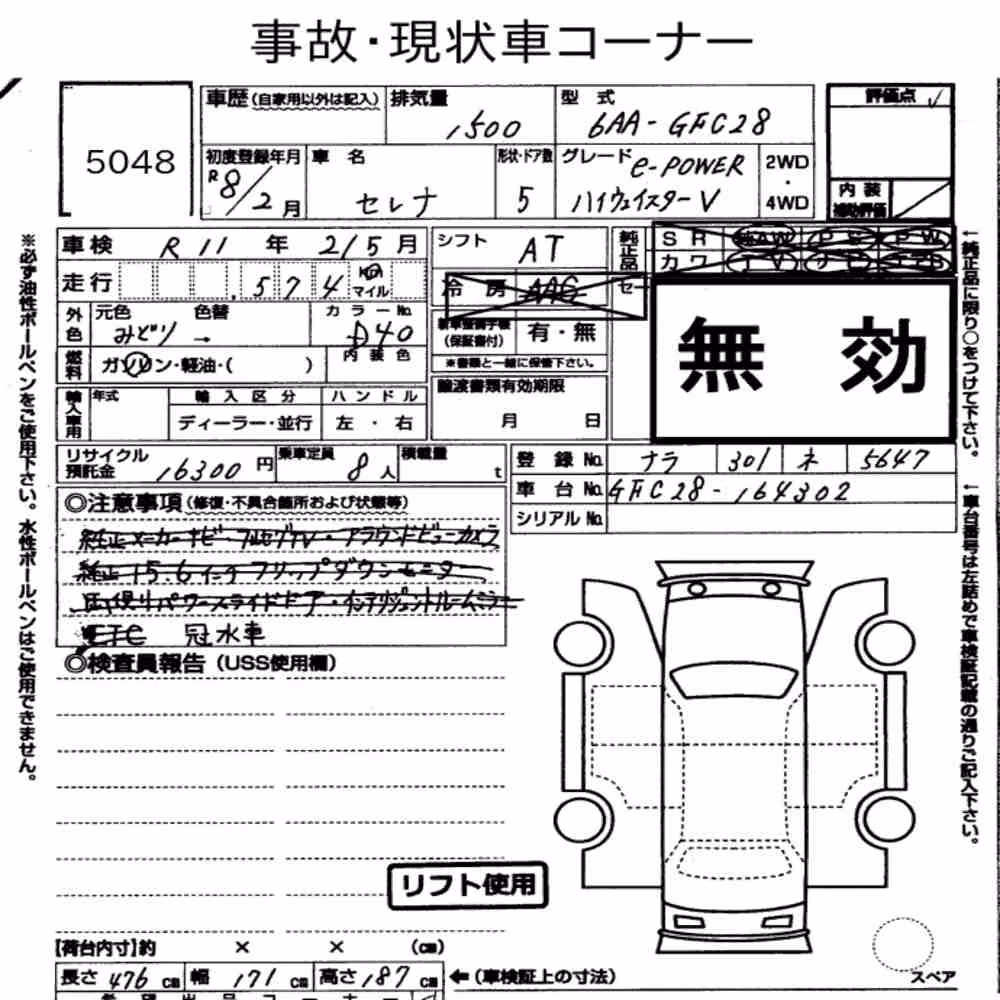 事故・現状車コーナー
5048
車歴(自家用以外は記入) 排気量 型式 評価点
1500 6AA-GFC28
初度登録年月 車名 形状・ドア数 グレード e-POWER 2WD・4WD
R8/2月 セレナ 5 ハイウェイスターV
内装補助評価
車検 R11年2/5月 シフト AT 純正品 SR 純AW PS PW
走行 574 km マイル 冷房 AAC カワ TV
外色 元色 色替 カラーNo.
みどり → D40
新車整備手帳(保証書付) 有・無
※書類と一緒に保管下さい。
燃料 ガソリン・軽油・( ) 内装色
無効
譲渡書類有効期限
月 日
輸入車用 年式 輸入区分 ハンドル
ディーラー・並行 左・右
リサイクル預託金 16300円 乗車定員 8人 積載量 t
登録No. ナラ 301 ネ 5647
車台No. GFC28-164302
シリアルNo.
◎注意事項(修復・不具合箇所および状態等)
純正メーカーナビ・フルセグTV・アラウンドビューカメラ
純正15.6インチフリップダウンモニター
パワースライドドア・インテリジェントルームミラー
ETC 冠水車
◎検査員報告(USS使用欄)
リフト使用
【荷台内寸】約 × × (cm)
長さ 476 cm 幅 171 cm 高さ 187 cm ←(車検証上の寸法)
スペア
※必ず油性ボールペンをご使用下さい。水性ボールペンはご使用できません。
←純正品に限り○をつけて下さい。
←車台番号は左詰めで車検証記載の通りご記入下さい。